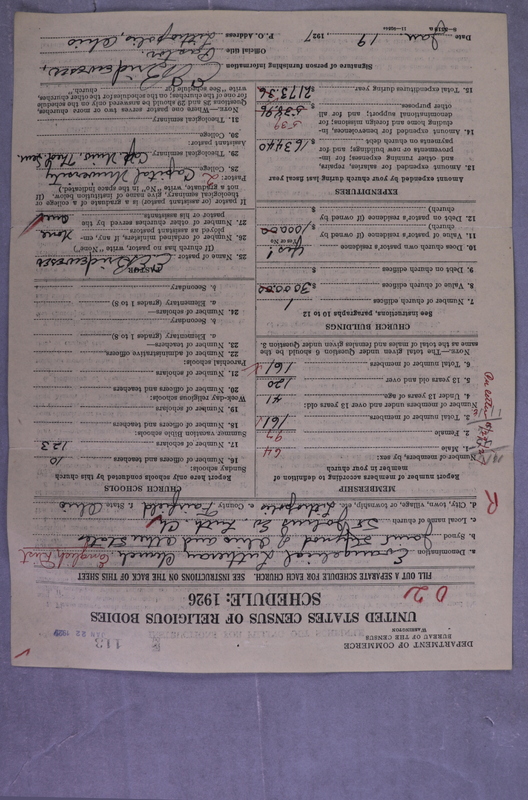 DEPARTMENT OF COMMERCE
BUREAU OF THE CENSUS
WASHINGTON
113
JAN 22 1927
UNITED STATES CENSUS OF RELIGIOUS BODIES
SCHEDULE: 1926
FILL OUT A SEPARATE SCHEDULE FOR EACH CHURCH. SEE INSTRUCTIONS ON THE BACK OF THIS SHEET
a. Denomination Evangelical Lutheran Church English Dist
b. Synod Joint Synod of Ohio and other States
c. Local name of church St Johns Ev. Luth. Ch.
d. City, town, village, or township, etc. Lithopolis e. County Fairfield f. State Ohio
R
MEMBERSHIP
Report number of members according to definition of member in your church
Number of members, by sex:
1. Male 64
2. Female 97
3. Total number of members 161
Number of members under and over 13 years old:
4. Under 13 years of age 41
5. 13 years old and over 120
6. Total number of members 161
NOTE.—The total given under Question 6 should be the same as the total of males and females given under Question 3.
CHURCH BUILDINGS
See instructions, paragraphs 10 to 12
7. Number of church edifices 1
8. Value of church edifices $ 30000.00
9. Debt on church edifices $
10. Does church own pastor's residence Yes
(Yes or No)
11. Value of pastor's residence (if owned by church) $
12. Debt on pastor's residence (if owned by church) $
EXPENDITURES
Amount expended by your church during last fiscal year
13. Amount expended for salaries, repairs, and other running expenses; for improvements or new buildings; and for payments on church debt $ 1634.40
14. Amount expended for benevolences, including home and foreign missions; for denominational support; and for all other purposes $ 538.96
539
15. Total expenditures during year 2173.36
CHURCH SCHOOLS
Report here only schools conducted by this church
Sunday schools:
16. Number of officers and teachers 10
17. Number of scholars 123
Summer vacation Bible schools:
18. Number of officers and teachers
19. Number of scholars
Week-day religious schools:
20. Number of officers and teachers
21. Number of scholars
Parochial schools:
22. Number of administrative officers
23. Number of teachers—
a. Elementary (grades 1 to 8)
b. Secondary
24. Number of scholars—
a. Elementary (grades 1 to 8)
b. Secondary
PASTOR
25. Name of pastor
(If church has no pastor, write "None")
26. Number of ordained ministers, if any, employed as assistants None
27. Number of other churches served by the pastor or his assistants one
If pastor (or assistant pastor) is a graduate of a college or theological seminary, give name of institution below. (If not a graduate, write "No" in the space indicated).
Pastor:
28. College Capital University
29. Theological seminary Cap. Univ. Theol. Sem.
Assistant pastor:
30. College
31. Theological seminary
NOTE.—When one pastor serves two or more churches, Questions 28 and 29 should be answered only on the schedule for one of the churches; on the schedules for the other churches, write "See schedule for church."
Signature of person furnishing information
Official title Pastor.
P. O. Address Lithopolis, Ohio
Date Jan. 19, 1927